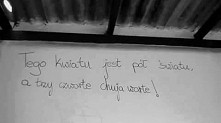 Tego kwiatu jest pół światu,
a trzy czwarte chuja warte!